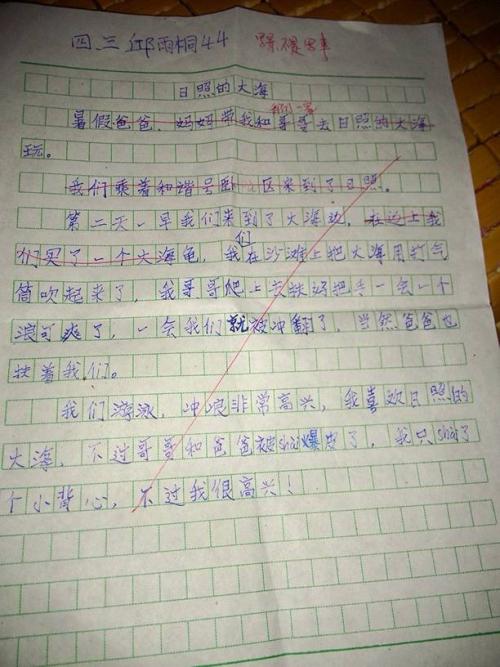 四.三 邱雨桐44 写景不是写事
日照的大海
暑假爸爸、妈妈带我和哥哥去日照的大海
我们一家
玩。
我们乘着和谐号卧区来到了日照。
第二天一早我们来到了大海边,在边上我
们买了一个大海龟,我们在沙滩上把大海用打气
筒吹起来了,我哥哥爬上去扶妈把手一会一个
浪可爽了,一会我们就被冲翻了,当然爸爸也
扶着我们。
我们游泳,冲浪非常高兴,我喜欢日照的
大海,不过哥哥和爸爸被shai爆皮了,我只shai了
个小背心,不过我很高兴!